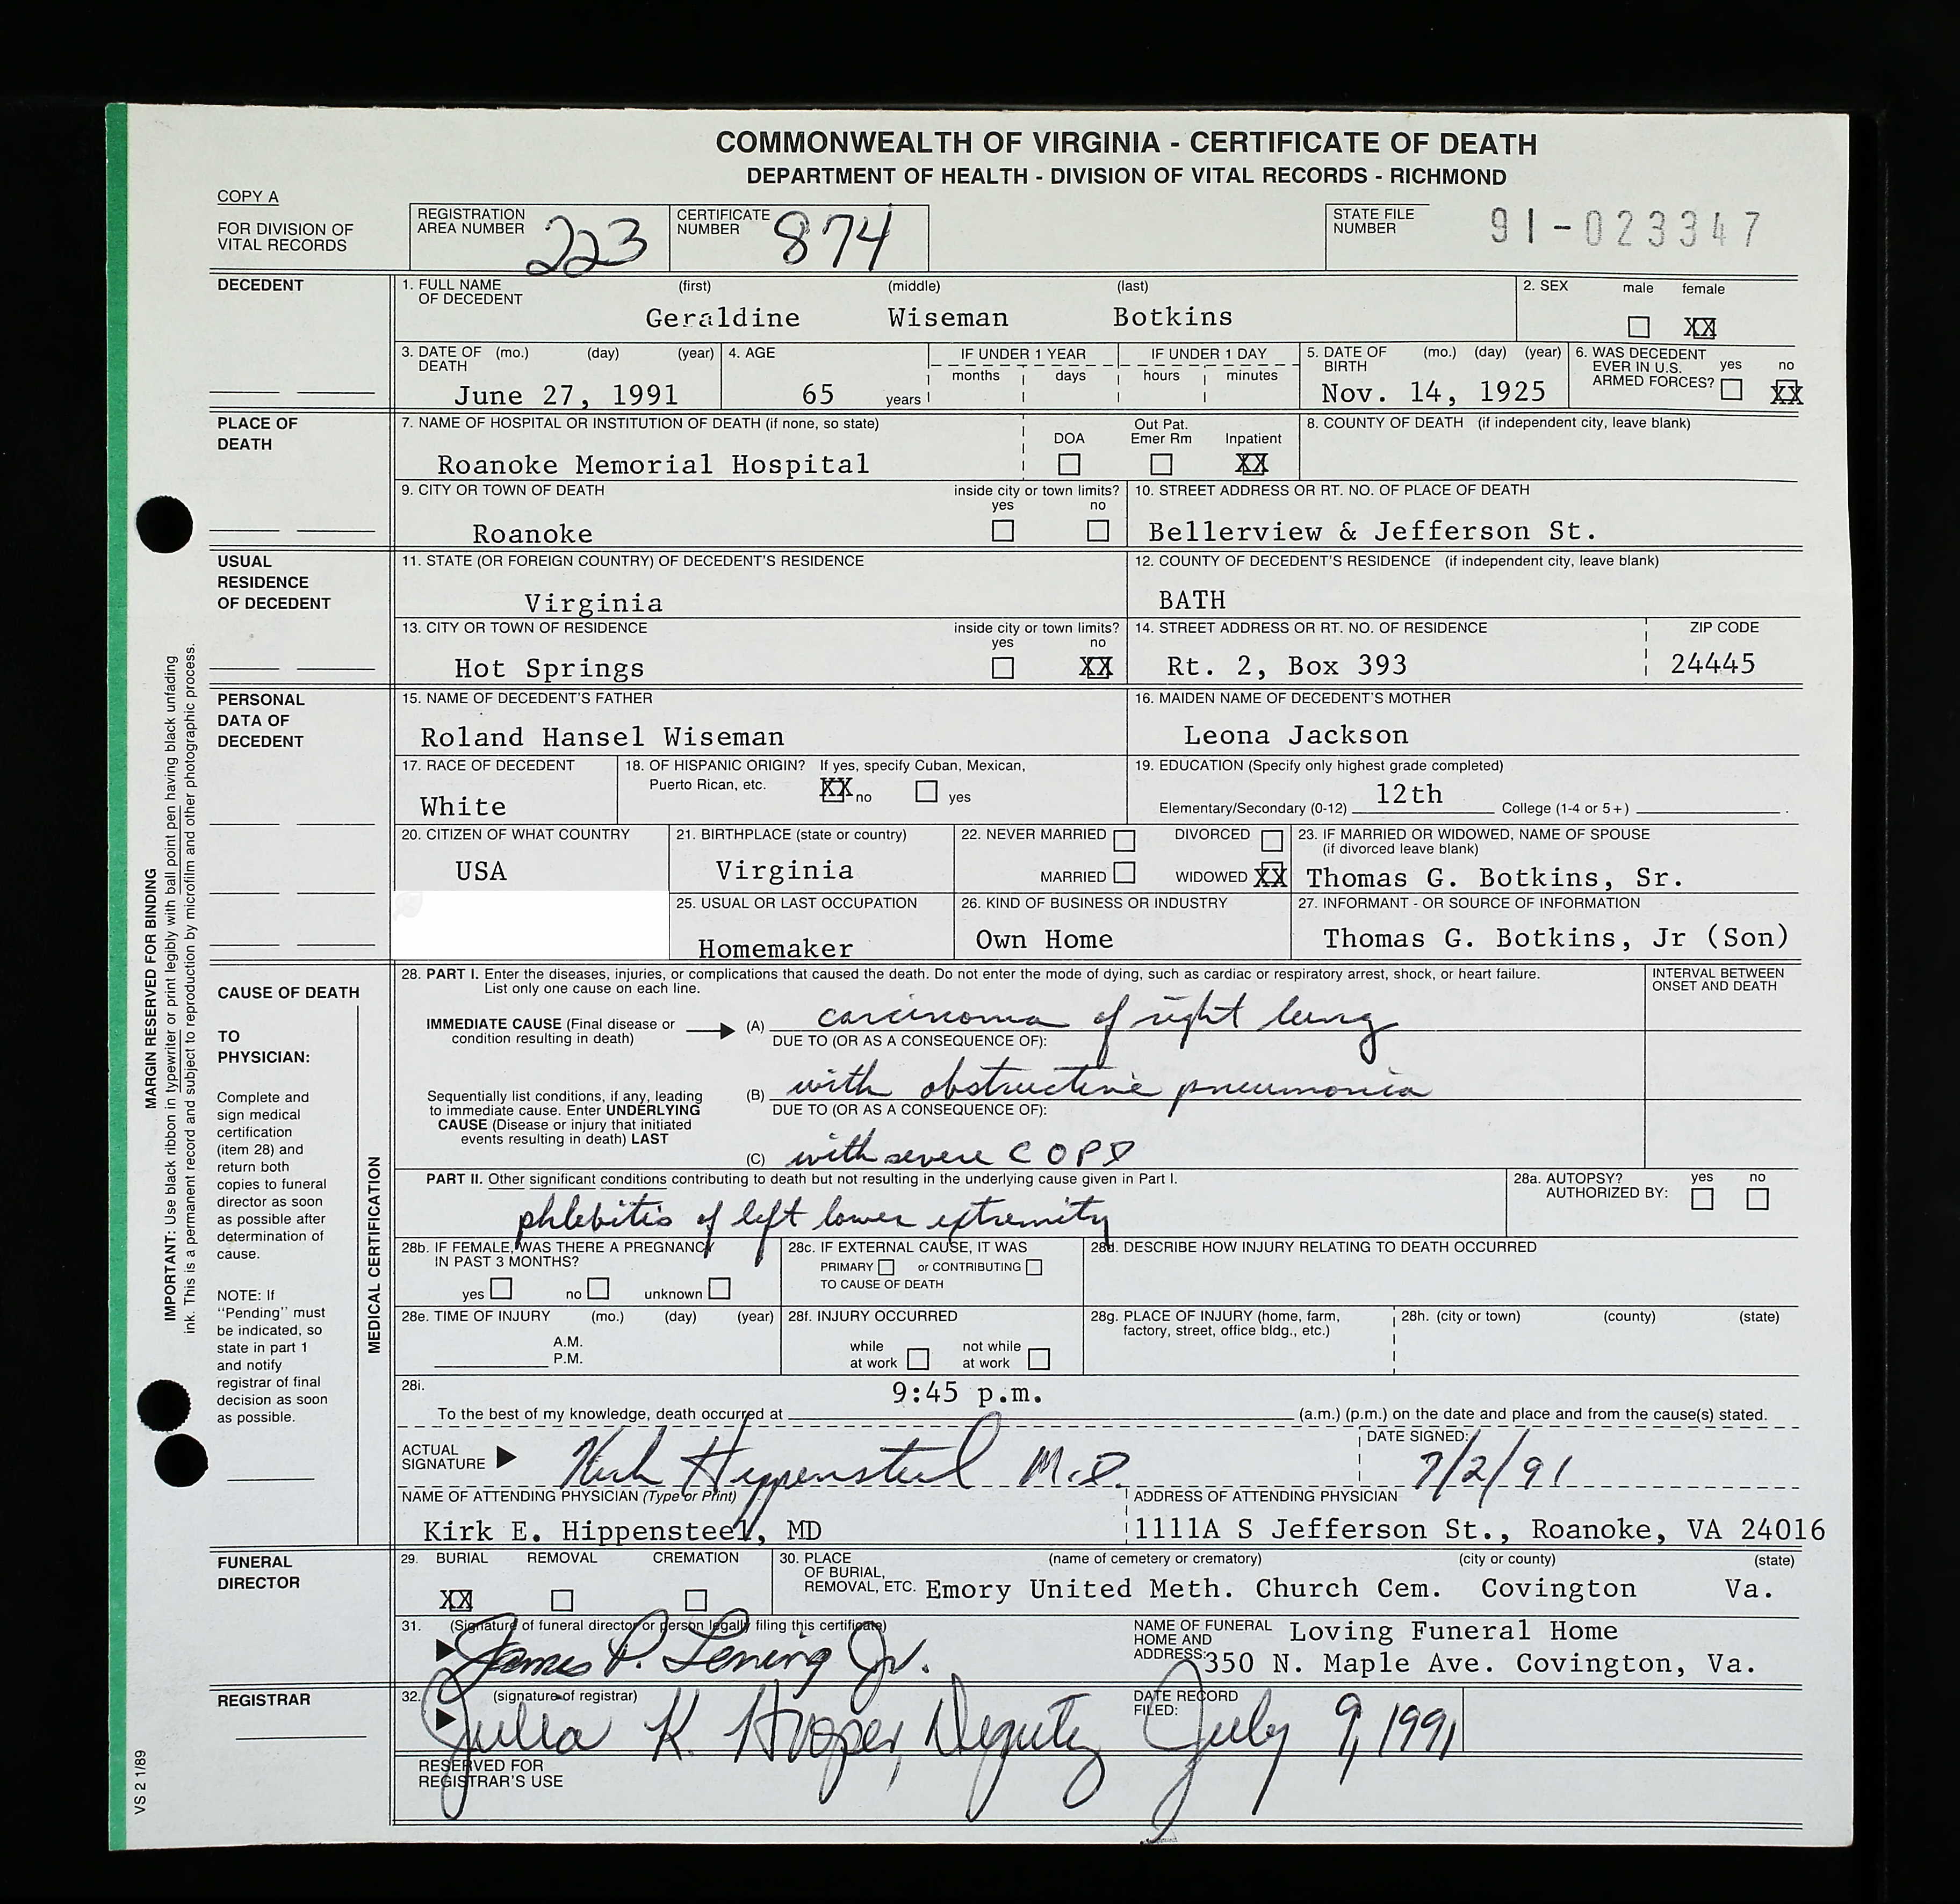 COMMONWEALTH OF VIRGINIA - CERTIFICATE OF DEATH
DEPARTMENT OF HEALTH - DIVISION OF VITAL RECORDS - RICHMOND
COPY A
FOR DIVISION OF
VITAL RECORDS
REGISTRATION
AREA NUMBER 223
CERTIFICATE
NUMBER 874
STATE FILE
NUMBER 91-023347
DECEDENT
1. FULL NAME
OF DECEDENT (first) (middle) (last)
Geraldine Wiseman Botkins
2. SEX male female
XX
3. DATE OF (mo.) (day) (year)
DEATH
June 27, 1991
4. AGE
65 years
IF UNDER 1 YEAR
months days
IF UNDER 1 DAY
hours minutes
5. DATE OF (mo.) (day) (year)
BIRTH
Nov. 14, 1925
6. WAS DECEDENT
EVER IN U.S.
ARMED FORCES? yes no
XX
PLACE OF
DEATH
7. NAME OF HOSPITAL OR INSTITUTION OF DEATH (if none, so state)
Roanoke Memorial Hospital
DOA
Out Pat.
Emer Rm
Inpatient
XX
8. COUNTY OF DEATH (if independent city, leave blank)
9. CITY OR TOWN OF DEATH inside city or town limits?
yes no
Roanoke
10. STREET ADDRESS OR RT. NO. OF PLACE OF DEATH
Bellerview & Jefferson St.
USUAL
RESIDENCE
OF DECEDENT
11. STATE (OR FOREIGN COUNTRY) OF DECEDENT'S RESIDENCE
Virginia
12. COUNTY OF DECEDENT'S RESIDENCE (if independent city, leave blank)
BATH
13. CITY OR TOWN OF RESIDENCE inside city or town limits?
yes no
Hot Springs XX
14. STREET ADDRESS OR RT. NO. OF RESIDENCE ZIP CODE
Rt. 2, Box 393 24445
PERSONAL
DATA OF
DECEDENT
15. NAME OF DECEDENT'S FATHER
Roland Hansel Wiseman
16. MAIDEN NAME OF DECEDENT'S MOTHER
Leona Jackson
17. RACE OF DECEDENT
White
18. OF HISPANIC ORIGIN? If yes, specify Cuban, Mexican,
Puerto Rican, etc. XX no yes
19. EDUCATION (Specify only highest grade completed)
Elementary/Secondary (0-12) 12th College (1-4 or 5+)
20. CITIZEN OF WHAT COUNTRY
USA
21. BIRTHPLACE (state or country)
Virginia
22. NEVER MARRIED DIVORCED
MARRIED WIDOWED XX
23. IF MARRIED OR WIDOWED, NAME OF SPOUSE
(if divorced leave blank)
Thomas G. Botkins, Sr.
25. USUAL OR LAST OCCUPATION
Homemaker
26. KIND OF BUSINESS OR INDUSTRY
Own Home
27. INFORMANT - OR SOURCE OF INFORMATION
Thomas G. Botkins, Jr (Son)
CAUSE OF DEATH
TO
PHYSICIAN:
Complete and
sign medical
certification
(item 28) and
return both
copies to funeral
director as soon
as possible after
determination of
cause.
NOTE: If
"Pending" must
be indicated, so
state in part 1
and notify
registrar of final
decision as soon
as possible.
MEDICAL CERTIFICATION
28. PART I. Enter the diseases, injuries, or complications that caused the death. Do not enter the mode of dying, such as cardiac or respiratory arrest, shock, or heart failure.
List only one cause on each line.
INTERVAL BETWEEN
ONSET AND DEATH
IMMEDIATE CAUSE (Final disease or
condition resulting in death)
(A) carcinoma of right lung
DUE TO (OR AS A CONSEQUENCE OF):
Sequentially list conditions, if any, leading
to immediate cause. Enter UNDERLYING
CAUSE (Disease or injury that initiated
events resulting in death) LAST
(B) with obstructive pneumonia
DUE TO (OR AS A CONSEQUENCE OF):
(C) with severe COPD
PART II. Other significant conditions contributing to death but not resulting in the underlying cause given in Part I.
phlebitis of left lower extremity
28a. AUTOPSY? yes no
AUTHORIZED BY:
28b. IF FEMALE, WAS THERE A PREGNANCY
IN PAST 3 MONTHS?
yes no unknown
28c. IF EXTERNAL CAUSE, IT WAS
PRIMARY or CONTRIBUTING
TO CAUSE OF DEATH
28d. DESCRIBE HOW INJURY RELATING TO DEATH OCCURRED
28e. TIME OF INJURY (mo.) (day) (year)
A.M.
P.M.
28f. INJURY OCCURRED
while
at work
not while
at work
28g. PLACE OF INJURY (home, farm,
factory, street, office bldg., etc.)
28h. (city or town) (county) (state)
28i.
9:45 p.m.
To the best of my knowledge, death occurred at (a.m.) (p.m.) on the date and place and from the cause(s) stated.
ACTUAL
SIGNATURE Kirk Hippensteel M.D.
DATE SIGNED:
7/2/91
NAME OF ATTENDING PHYSICIAN (Type or Print)
Kirk E. Hippensteel, MD
ADDRESS OF ATTENDING PHYSICIAN
1111A S Jefferson St., Roanoke, VA 24016
FUNERAL
DIRECTOR
29. BURIAL REMOVAL CREMATION
XX
30. PLACE
OF BURIAL,
REMOVAL, ETC. (name of cemetery or crematory) (city or county) (state)
Emory United Meth. Church Cem. Covington Va.
31. (Signature of funeral director or person legally filing this certificate)
James P. Jr.
NAME OF FUNERAL
HOME AND
ADDRESS:
Loving Funeral Home
350 N. Maple Ave. Covington, Va.
REGISTRAR
32. (signature of registrar)
Julia K. Hooper, Deputy
DATE RECORD
FILED: July 9, 1991
RESERVED FOR
REGISTRAR'S USE
MARGIN RESERVED FOR BINDING
IMPORTANT: Use black ribbon in typewriter or print legibly with ball point pen having black unfading
ink. This is a permanent record and subject to reproduction by microfilm and other photographic process.
VS 2 1/89